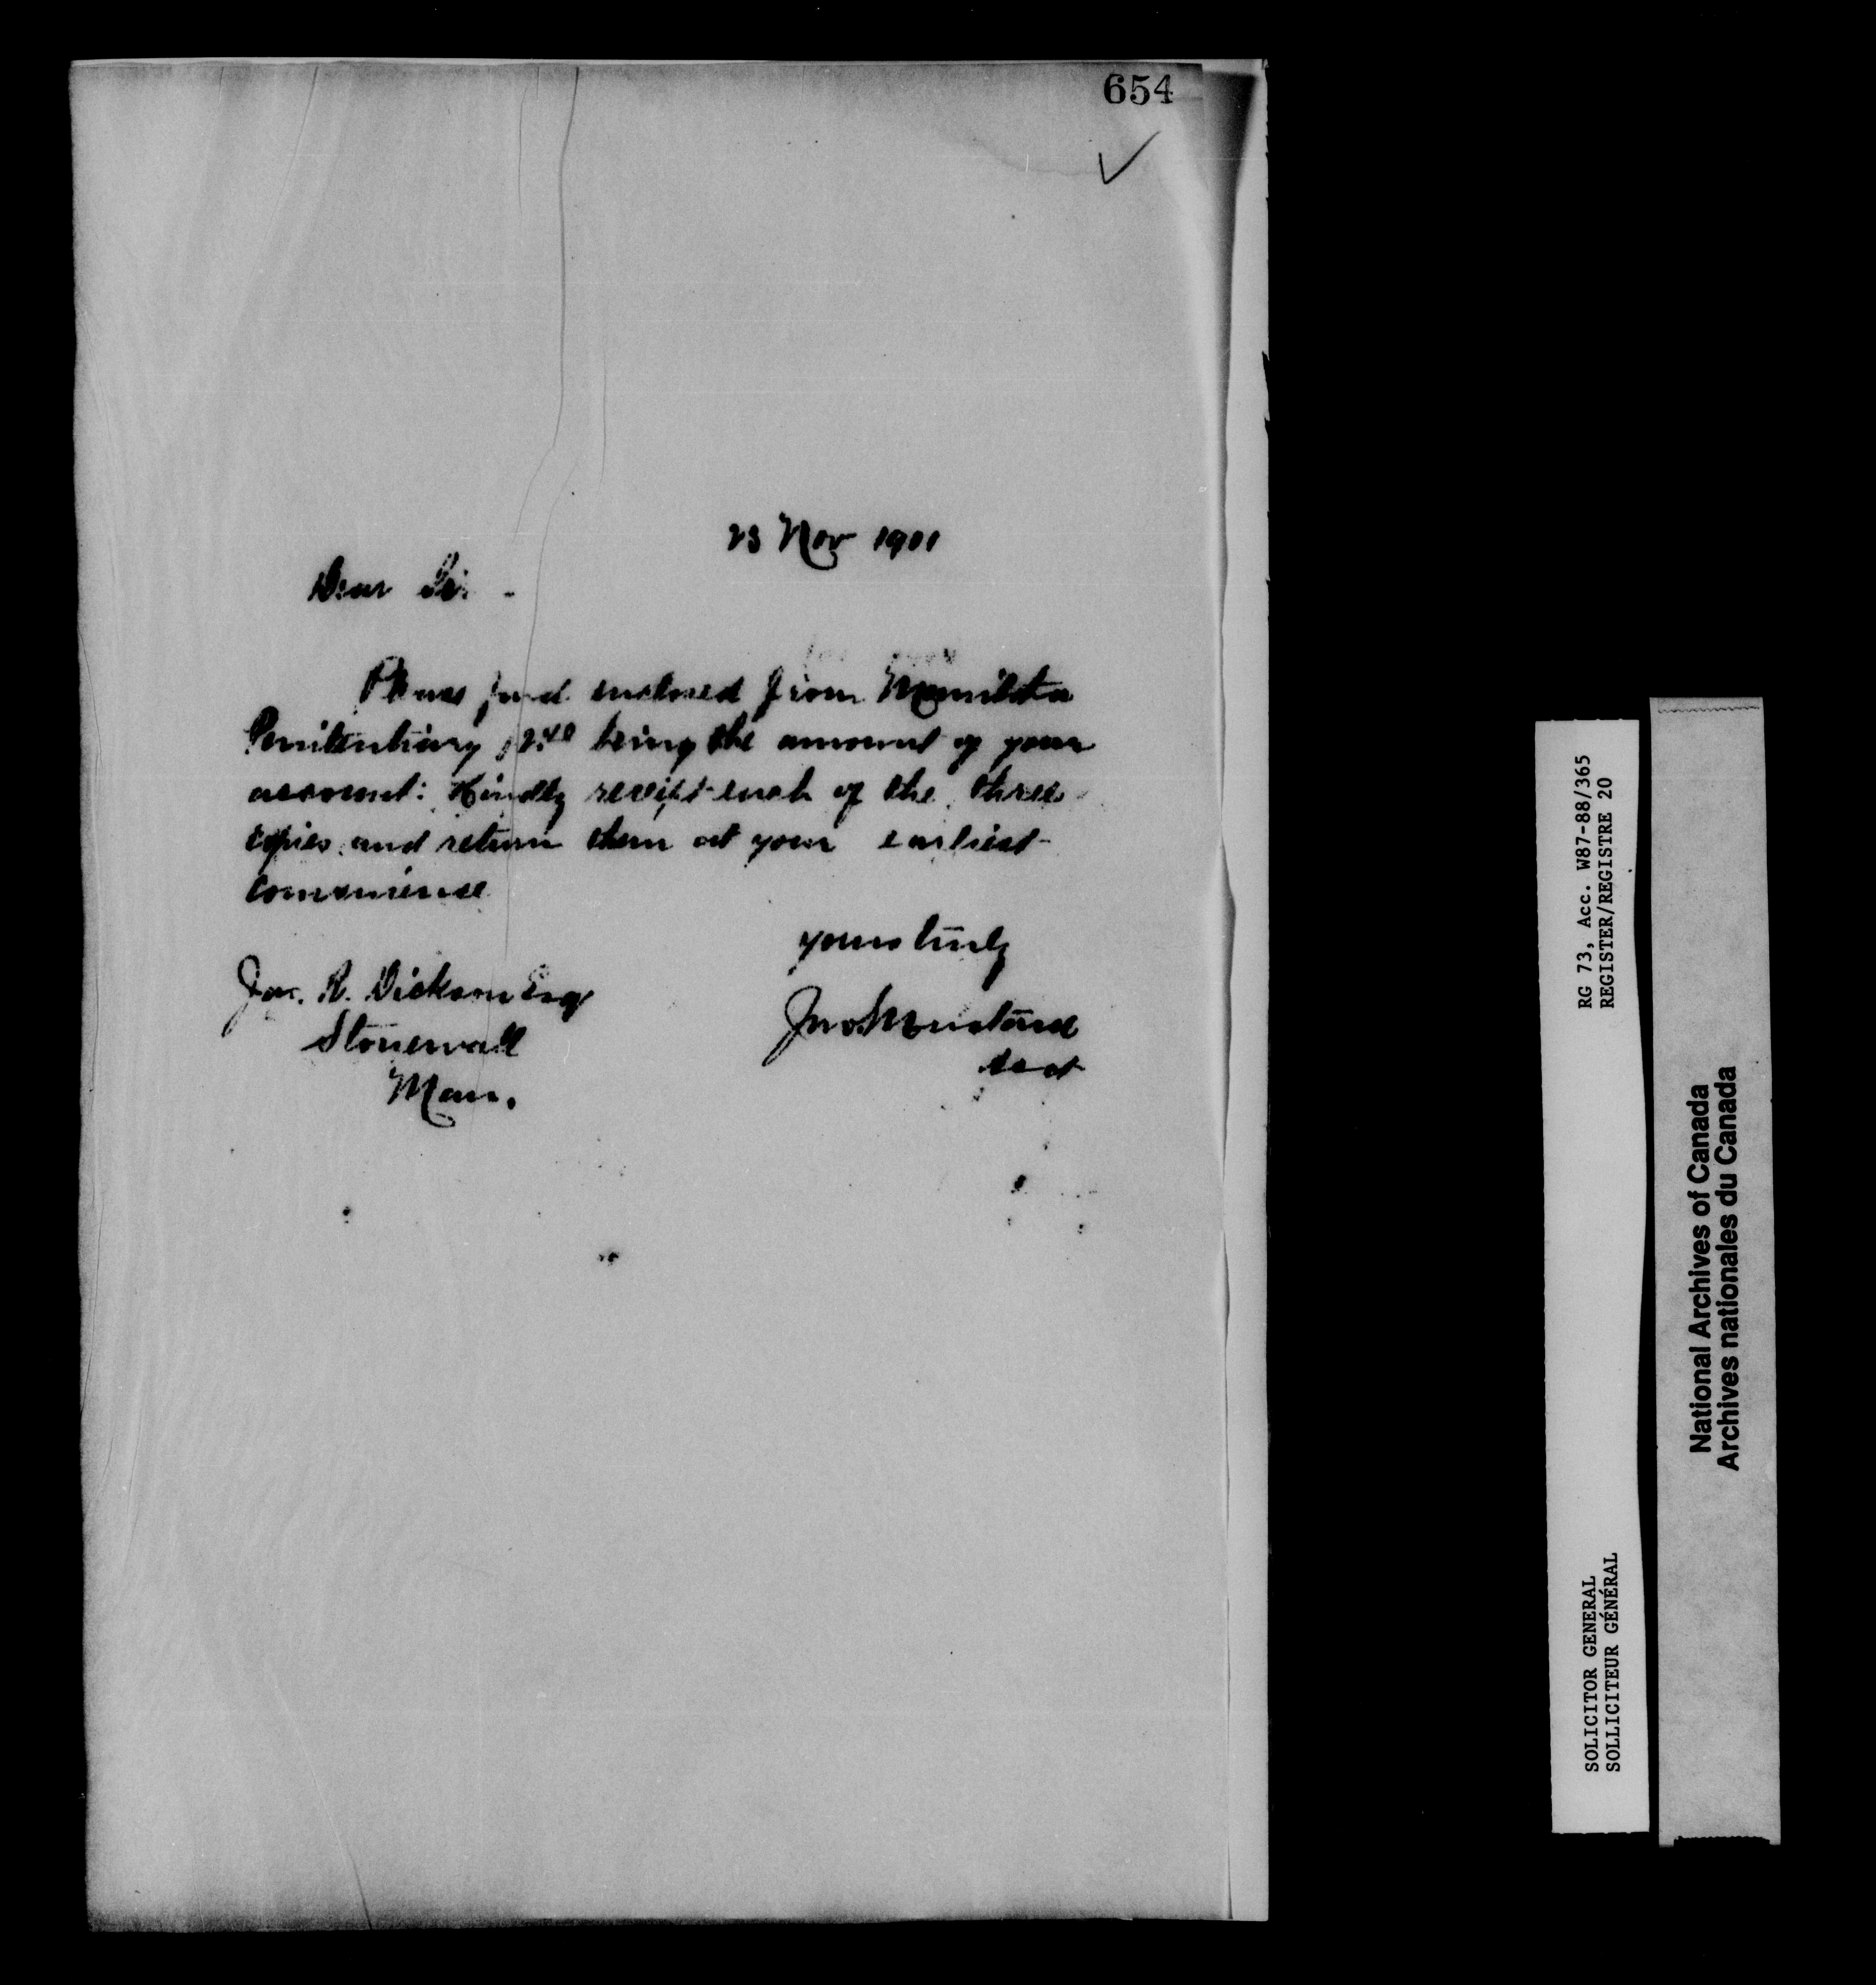 654
23 Nov 1901
Dear Sir -
Please find enclosed from Manitoba
Penitentiary being the amount of your
account: Kindly receipt each of the three
copies and return them at your earliest
convenience
yours truly
Jas. R. Dickson Esq
Stonewall
Man.
RG 73, Acc. W87-88/365
REGISTER/REGISTRE 20
SOLICITOR GENERAL
SOLLICITEUR GÉNÉRAL
National Archives of Canada
Archives nationales du Canada